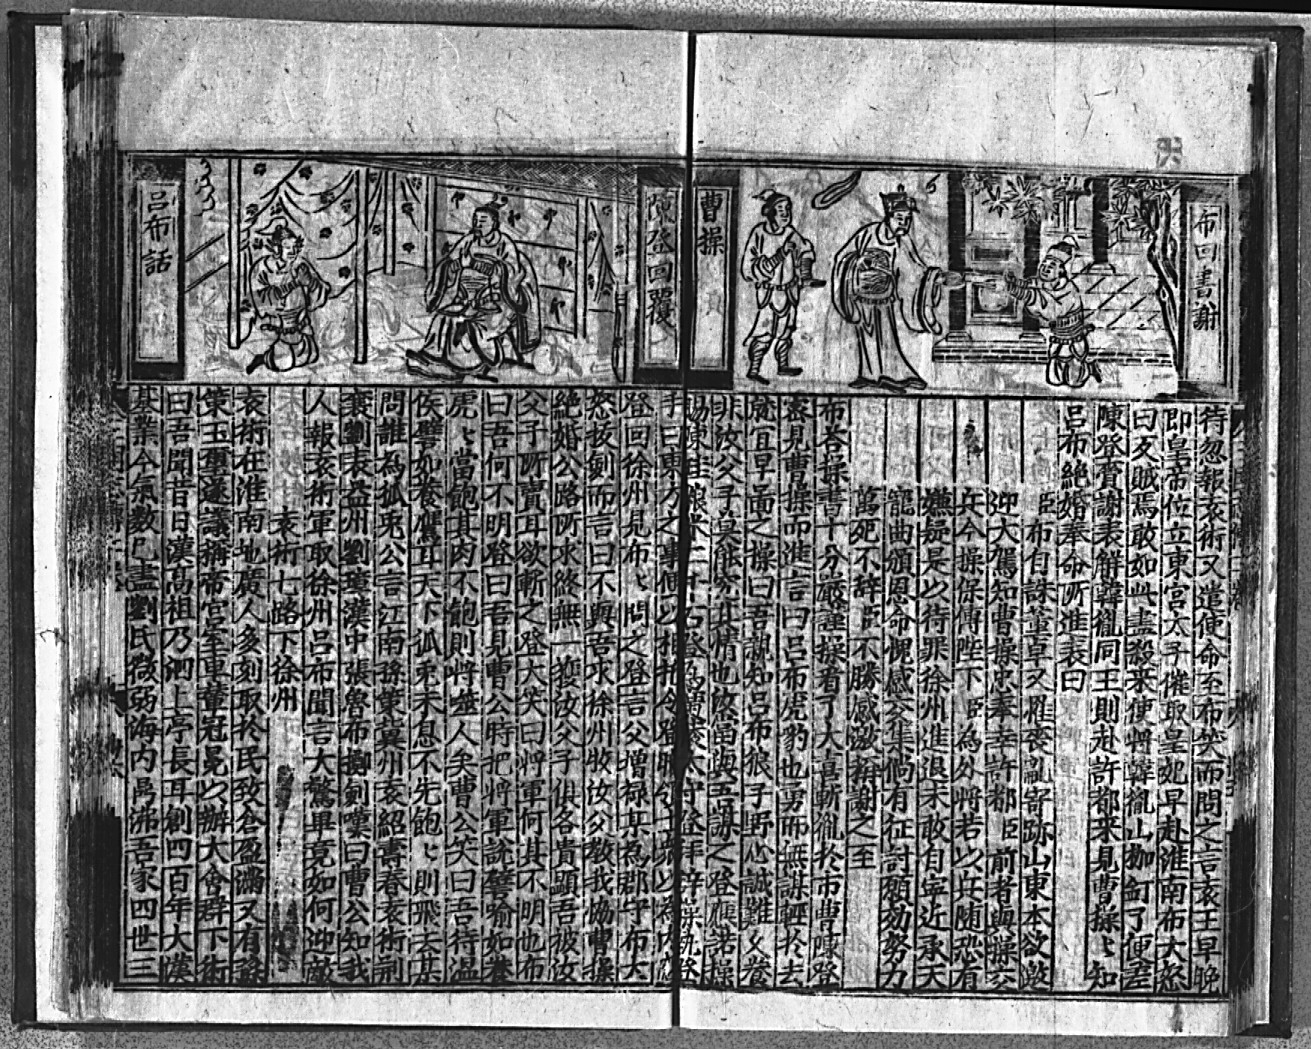 布回書謝
曹操
待忽報袁術又遣使命至布笑而問之言袁王早晚
即皇帝位立東宮太子催取皇妃早赴淮南布大怒
曰反賊焉敢如此盡殺来使将韓胤山枷釘了便差
陳登賫謝表觧韓胤同王則赴許都来見曹操〻知
呂布絶婚奉命所進表曰
臣布自誅董卓又催喪亂寄跡山東本欲邀
迎大駕知曹操忠奉幸許都臣前者與操交
兵今操保傅陛下臣為外將若以兵随恐有
嫌疑是以待罪徐州進退未敢自寧近承天
寵曲頒恩命愧感交集倘有征討願効努力
萬死不辞臣不勝感激拜謝之至
布荅操書十分嚴謹操看了大喜斬胤於市曹陳登
密見曹操而進言曰呂布虎豹也勇而無謀輕於去
就宜早圖之操曰吾親知呂布狼子野心誠難久養
非汝父子莫能究其情也汝當與吾謀之登應諾操
陳登回覆
呂布話
手曰東方之事便以相托令登
登回徐州見布〻問之登言父増禄某為郡守布大
怒拔劍而言曰不與吾求徐州牧汝父教我恊曹操
絶婚公路所求終無一獲汝父子俱各貴顯吾被汝
父子所賣耳欲斬之登大笑曰將軍何其不明也布
曰吾何不明登曰吾見曹公時把將軍說譬喻如養
虎〻當飽其肉不飽則将噬人矣曹公笑曰吾待温
侯譬如養鷹耳天下狐兎未息不先飽〻則飛去某
問誰為狐兎公言江南孫策冀州袁紹壽春袁術荆
襄劉表益州劉璋漢中張魯布擲劍嘆曰曹公知我
人報袁術軍取徐州呂布聞言大驚畢竟如何迎敵
袁術七路下徐州
袁術在淮南地廣人多刻取於民致倉盈滿又有餘
策玉璽遂議稱帝宮室車輦冠冕以辦大會群下術
曰吾聞昔日漢高祖乃泗上亭長耳創四百年大漢
基業今氣數已盡劉氏微弱海内鼎沸吾家四世三